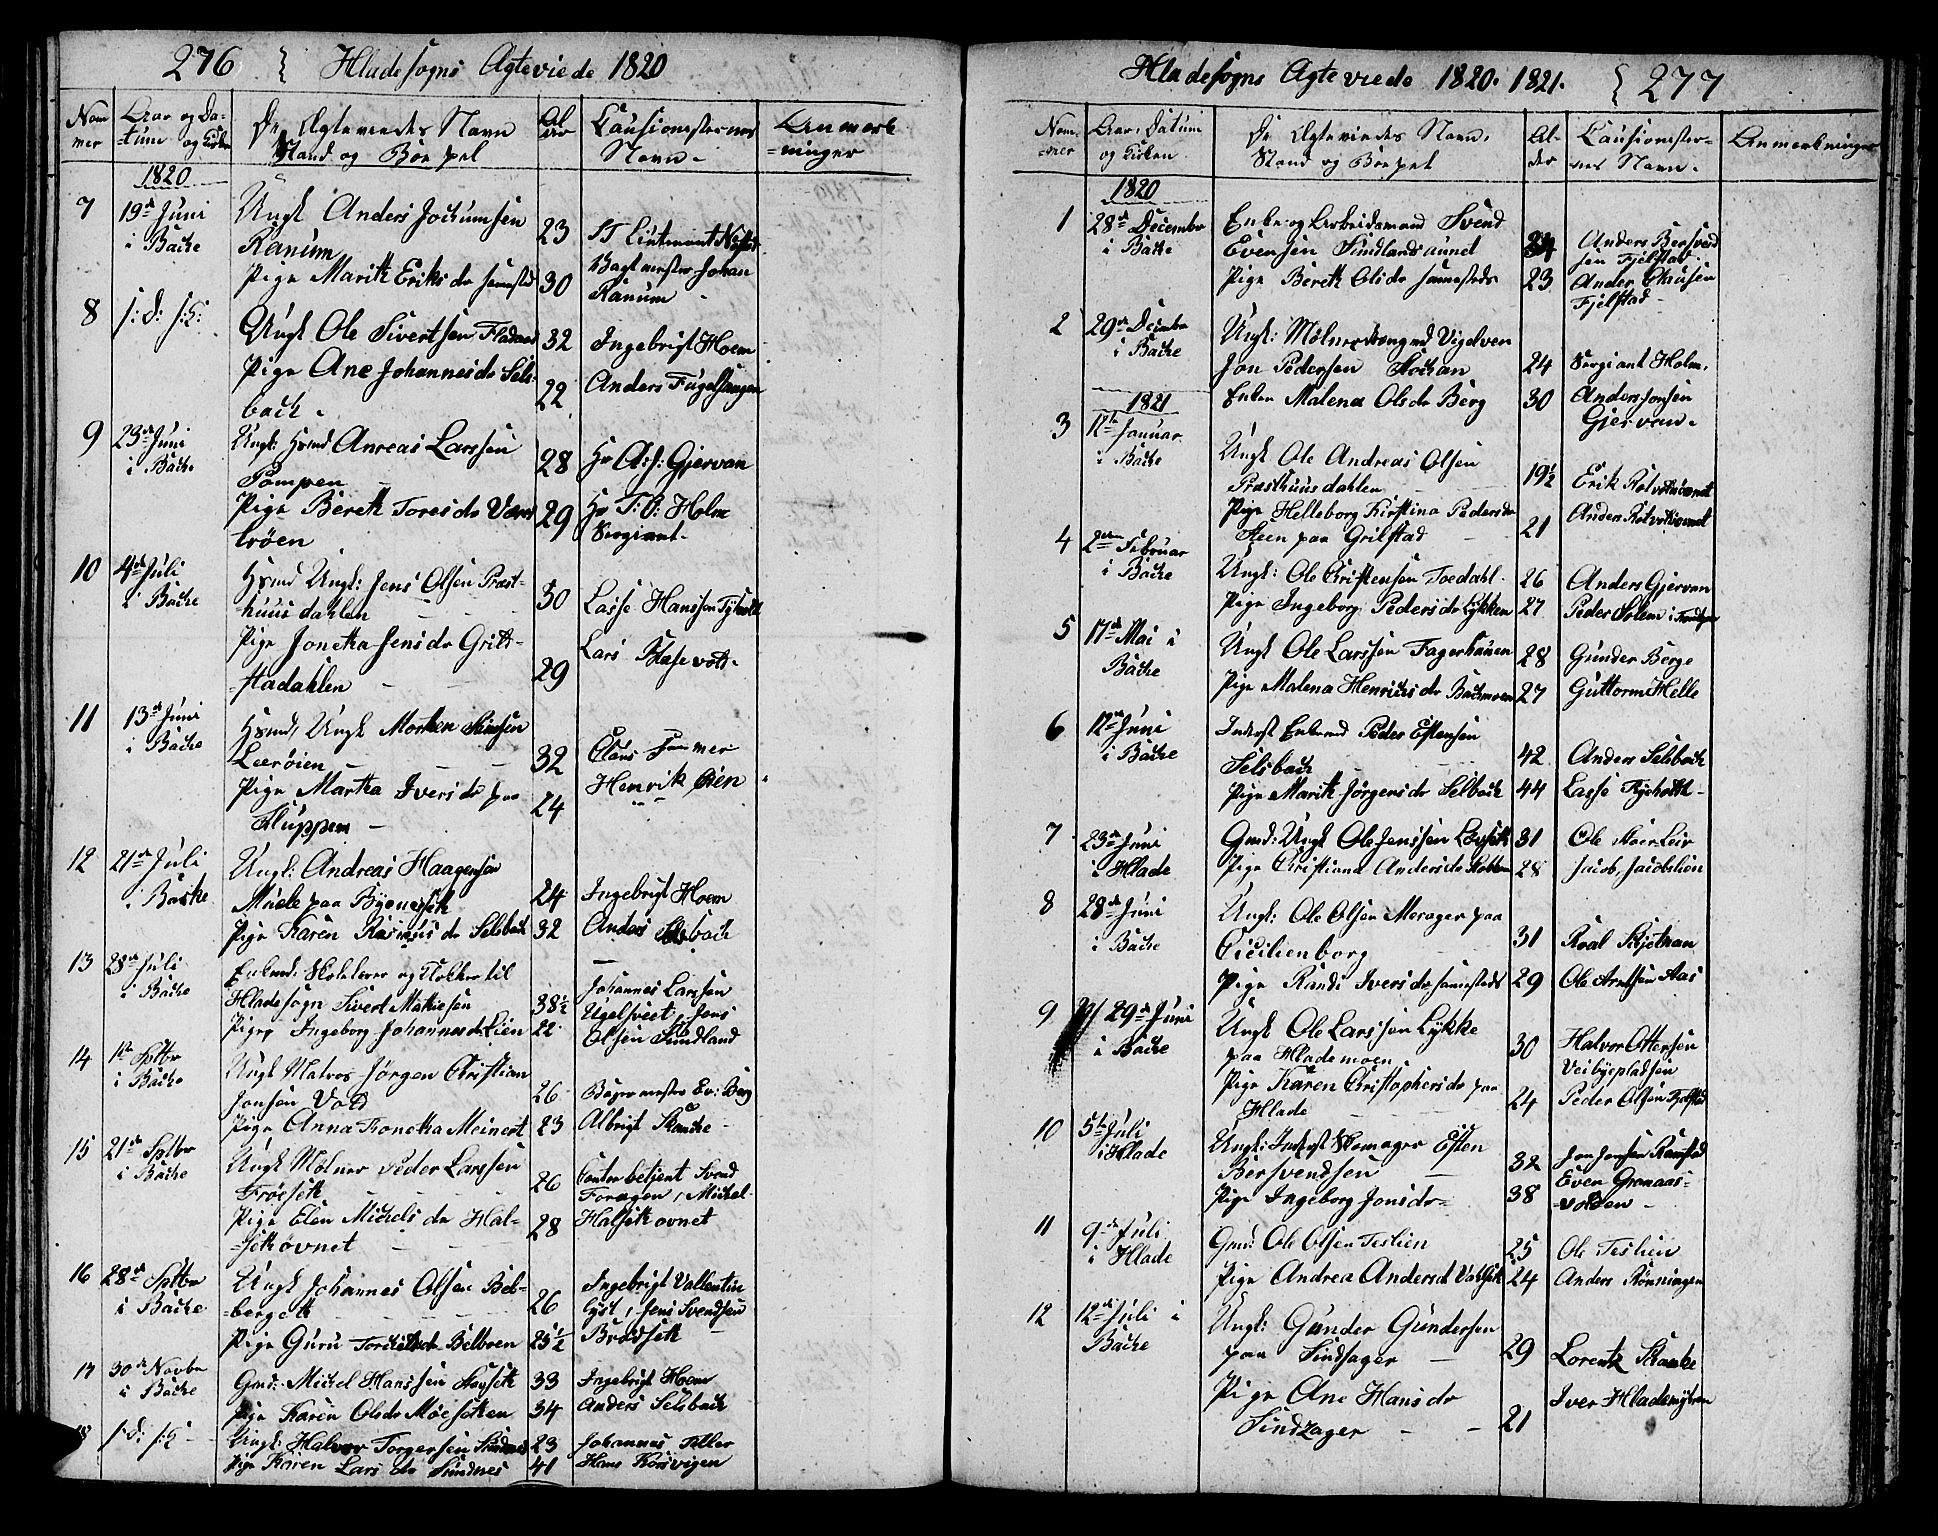 276 } Hlade sogns Ægteviede 1820
Nom mer
Aar og Datum og Kirken
De Ægteviedes Navn Stand og Boepæl
Alder
Causionisternes Navn
Anmærkninger
1820
7 19de Juni i Backe
Ungk Anders Jochumsen Ranum 23 Lieutnant
Pige Marith Eriksdr sammested 30 Johan Ranum
8 s: d: s: K:
Ungk Ole Sivertsen 32 Ingebrigt Hoem
Pige Ane Johannesdr Selsbach 22 Anders Fugelstangen
9 23de Juni i Backe
Ungk: Hsmd Anreas Larssen Pompen 28 Hr A: s: Gjervan
Pige Bereth Toresdr 29 Hr T: O: Holm Sergiant
10 4de Juli i Backe
Hsmd Ungk: Jens Olsen Præsthuusdahlen 30 Lasse Hanssen Tyholt
Pige Jonetha Jensdr Grilstadahlen 29 Lars
11 13de Juni i Backe
Hsmd, Ungk Morten Simsen Lerøien 32 Claus
Pige Martha Iversdr paa Sluppen 24 Henrik Øien
12 21de Juli i Backe
Ungk: Andreas Haagensen Muele paa Byeneset 24 Ingebrigt Hoem
Pige Karen Rasmusdr Selsbach 32 Anders Selsbach
13 28de Juli i Backe
Enkmd. Skolelærer og Klokker til Hlade sogn Sivert Mathiesen 38½ Johannes Larssen Ugelsveet, Jens
Pige Ingeborg Johannesdr Lien 22 Olsen Sundland
14 1ste Sptbr i Backe
Ungk Matros Jørgen Christian Jonsen Vold 26 Bager mester Ev: Berg
Pige Anna Jonetha Meinert 23 Albrigt Skanche
15 21de Sptbr i Backe
Ungk Mølner Peder Larssen Frøeseth 26 Svend Foragen, Michel
Pige Elen Michelsdr Halsethøvnet 28 Halsethovnet
16 28de Sptbr i Backe
Ungk Johannes Olsen Belbergeth 26 Ingebrigt Vallentinlyst, Jens Svendsen
Pige Guru Belbroen 25½ Brødseth
17 30de Novbr i Backe
Gmd: Michel Hanssen 33 Ingebrigt Hoem
Pige Karen Olsdr Møesethen 34 Anders Selsbach
18 s: d: s: K
Ungk: Halvor Torgersen Sundnes 23 Johannes Tiller
Pige Karen Larsdr Sundnes 41 Hans Korsvigen
Hlade sogns Ægteviede 1820. 1821. } 277
Nommer
Aar, Datum og Kirken
De Ægteviedes Navn, Stand og Boepæl
Alder
Causionisternes Navn.
Anmærkninger
1820
1 28de December i Backe
Enke og Arbeidsmand Svend Evensen Sundlandsaunet 34 Anders Bersvendsen Fjelstad
Pige Bereth Olsdr sammesteds 23 Ander Clausen Fjelstad
2 29de Decembr i Backe
Ungk: Mølnerdreng ved Vigelven Jon Pedersen 24 Sergiant Holm.
Enken Malena Olsdr Berg 30 Anders Jonsen Gjervan.
1821
3 12te Januar. i Backe
Ungk Ole Andreas Olsen Præsthuusdahlen 19½ Erik Rotvoldaunet
Pige Helleborg Kirstina Pedersdr Steen paa Grilstad 21 Anders Rotvoldaunet
4 2den Februar i Backe
Ungk: Ole Christensen Foedahl 26 Anders Gjervan
Pige Ingeborg Pedersdr Lykken 27 Peder Solem i
5 17de Mai i Backe
Ungk Ole Larssen Fagerhauen 28 Gunder Berge
Pige Malena Henrichsdr Bachmoen 27 Guttorm Helle
6 12te Juni i Backe
Inderst Enkmd Peder Estensen Selsbach 42 Anders Selsbach
Pige Marith Jørgensdr Selbach 44 Lasse Tyeholth
7 23de Juni i Hlade
Gmd: Ungk Ole Jenssen 31 Ole
Pige Christiana Andersdr 28 Jacob, Jacobslien
8 28de Juni i Backe
Ungk: Ole Olsen Morager paa Cicilienborg 31 Roal Skjetnan
Pige Randi Iversdr sammesteds 29 Ole Arntsen Aas
9 29de Juni i Backe
Ungk Ole Larssen Lykke paa Hlademoen 30 Halvor Ottersen Veibyepladsen
Pige Karen Christophersdr paa Hlade 24 Peder Olsen Fjelstad
10 5te Juli i Hlade
Ungk: Inderst Skomager Esten Bersvendsen 32 Jon Jonsen Ranstad
Pige Ingeborg Jonsdr 38 Even Granaasvolden
11 9de Juli i Hlade
Gmd: Ole Olsen Teslien 25 Ole Teslien
Pige Andrea Andersd 24 Anders Rønningen
12 12te Juli i Backe
Ungk: Gunder Gundersen paa Sindsager 29 Lorentz Skanke
Pige Ane Hansdr Sindzager 21 Iver Hlademyren